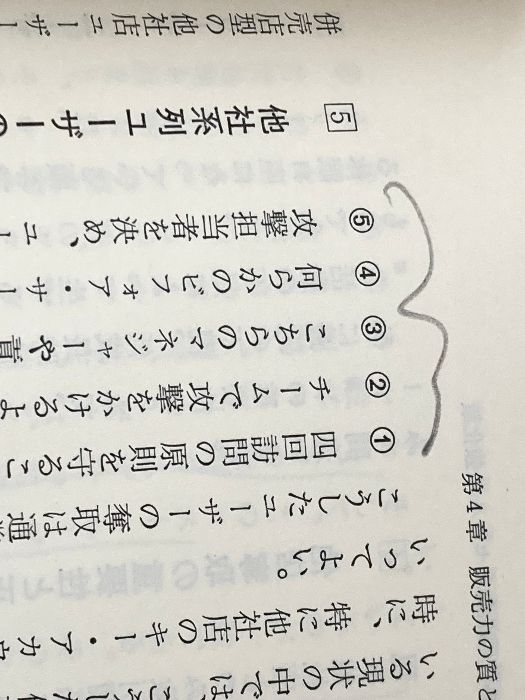 第4章 販売力の質と
いる現状の中では
時に、特に他社店のキー・アカウ
いってよい。
こうしたユーザーの奪取は通
① 四回訪問の原則を守るこ
② チームで攻撃をかけるよ
③ こちらのマネジャーや責
④ 何らかのビフォア・サー
⑤ 攻撃担当者を決め、ユー
5 他社系列ユーザーの
併売店型の他社店ユーザー